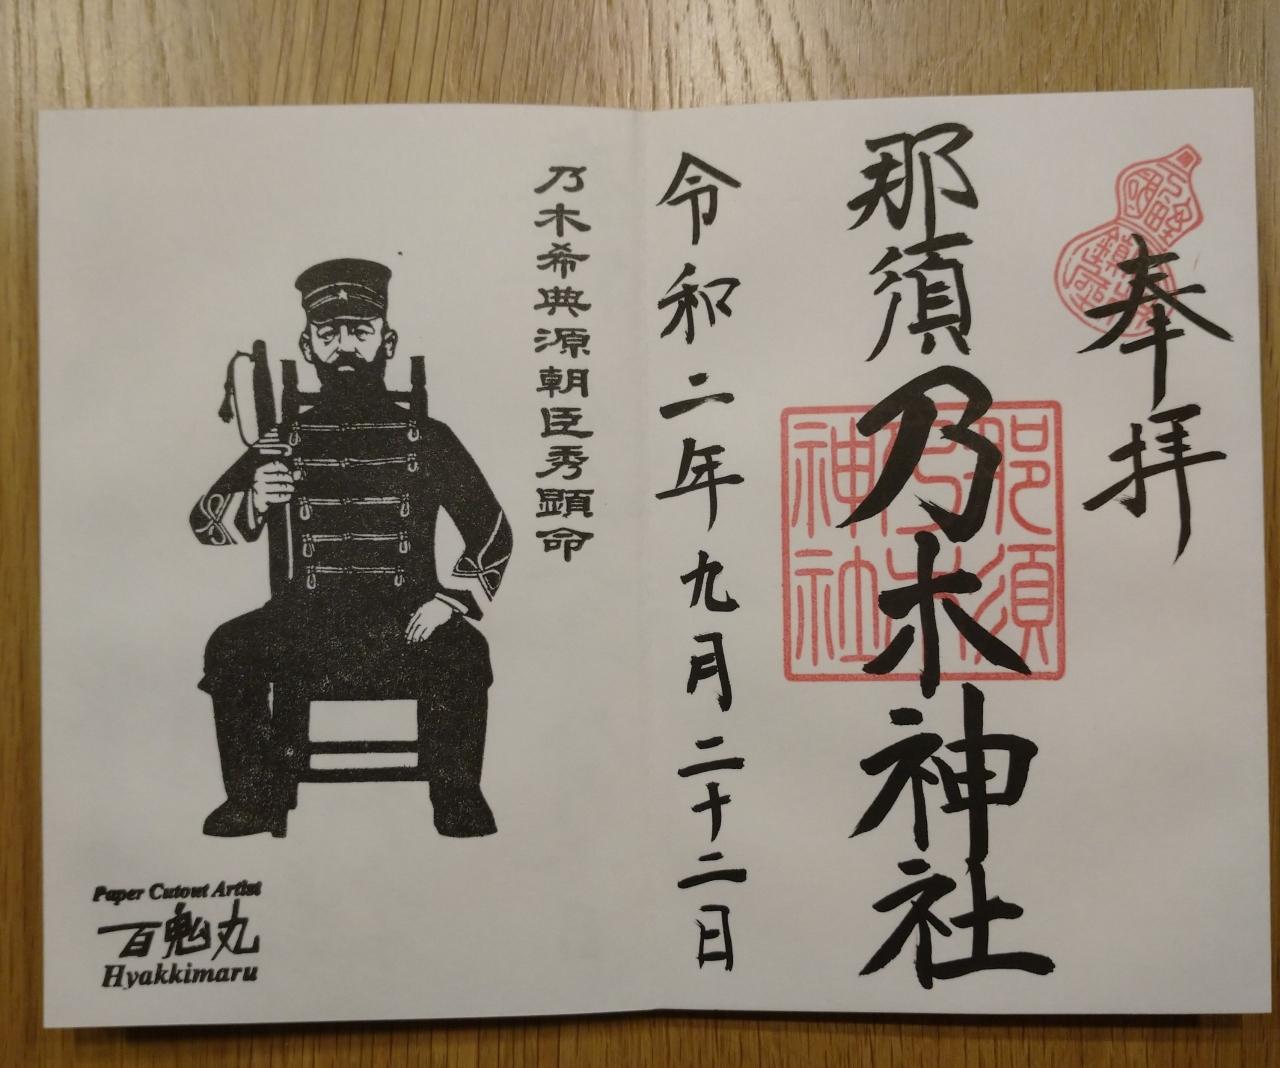 奉拝
那須乃木神社
令和二年九月二十二日
乃木希典源朝臣秀顕命
那須
乃木
神社
Paper Cutout Artist
百鬼丸
Hyakkimaru